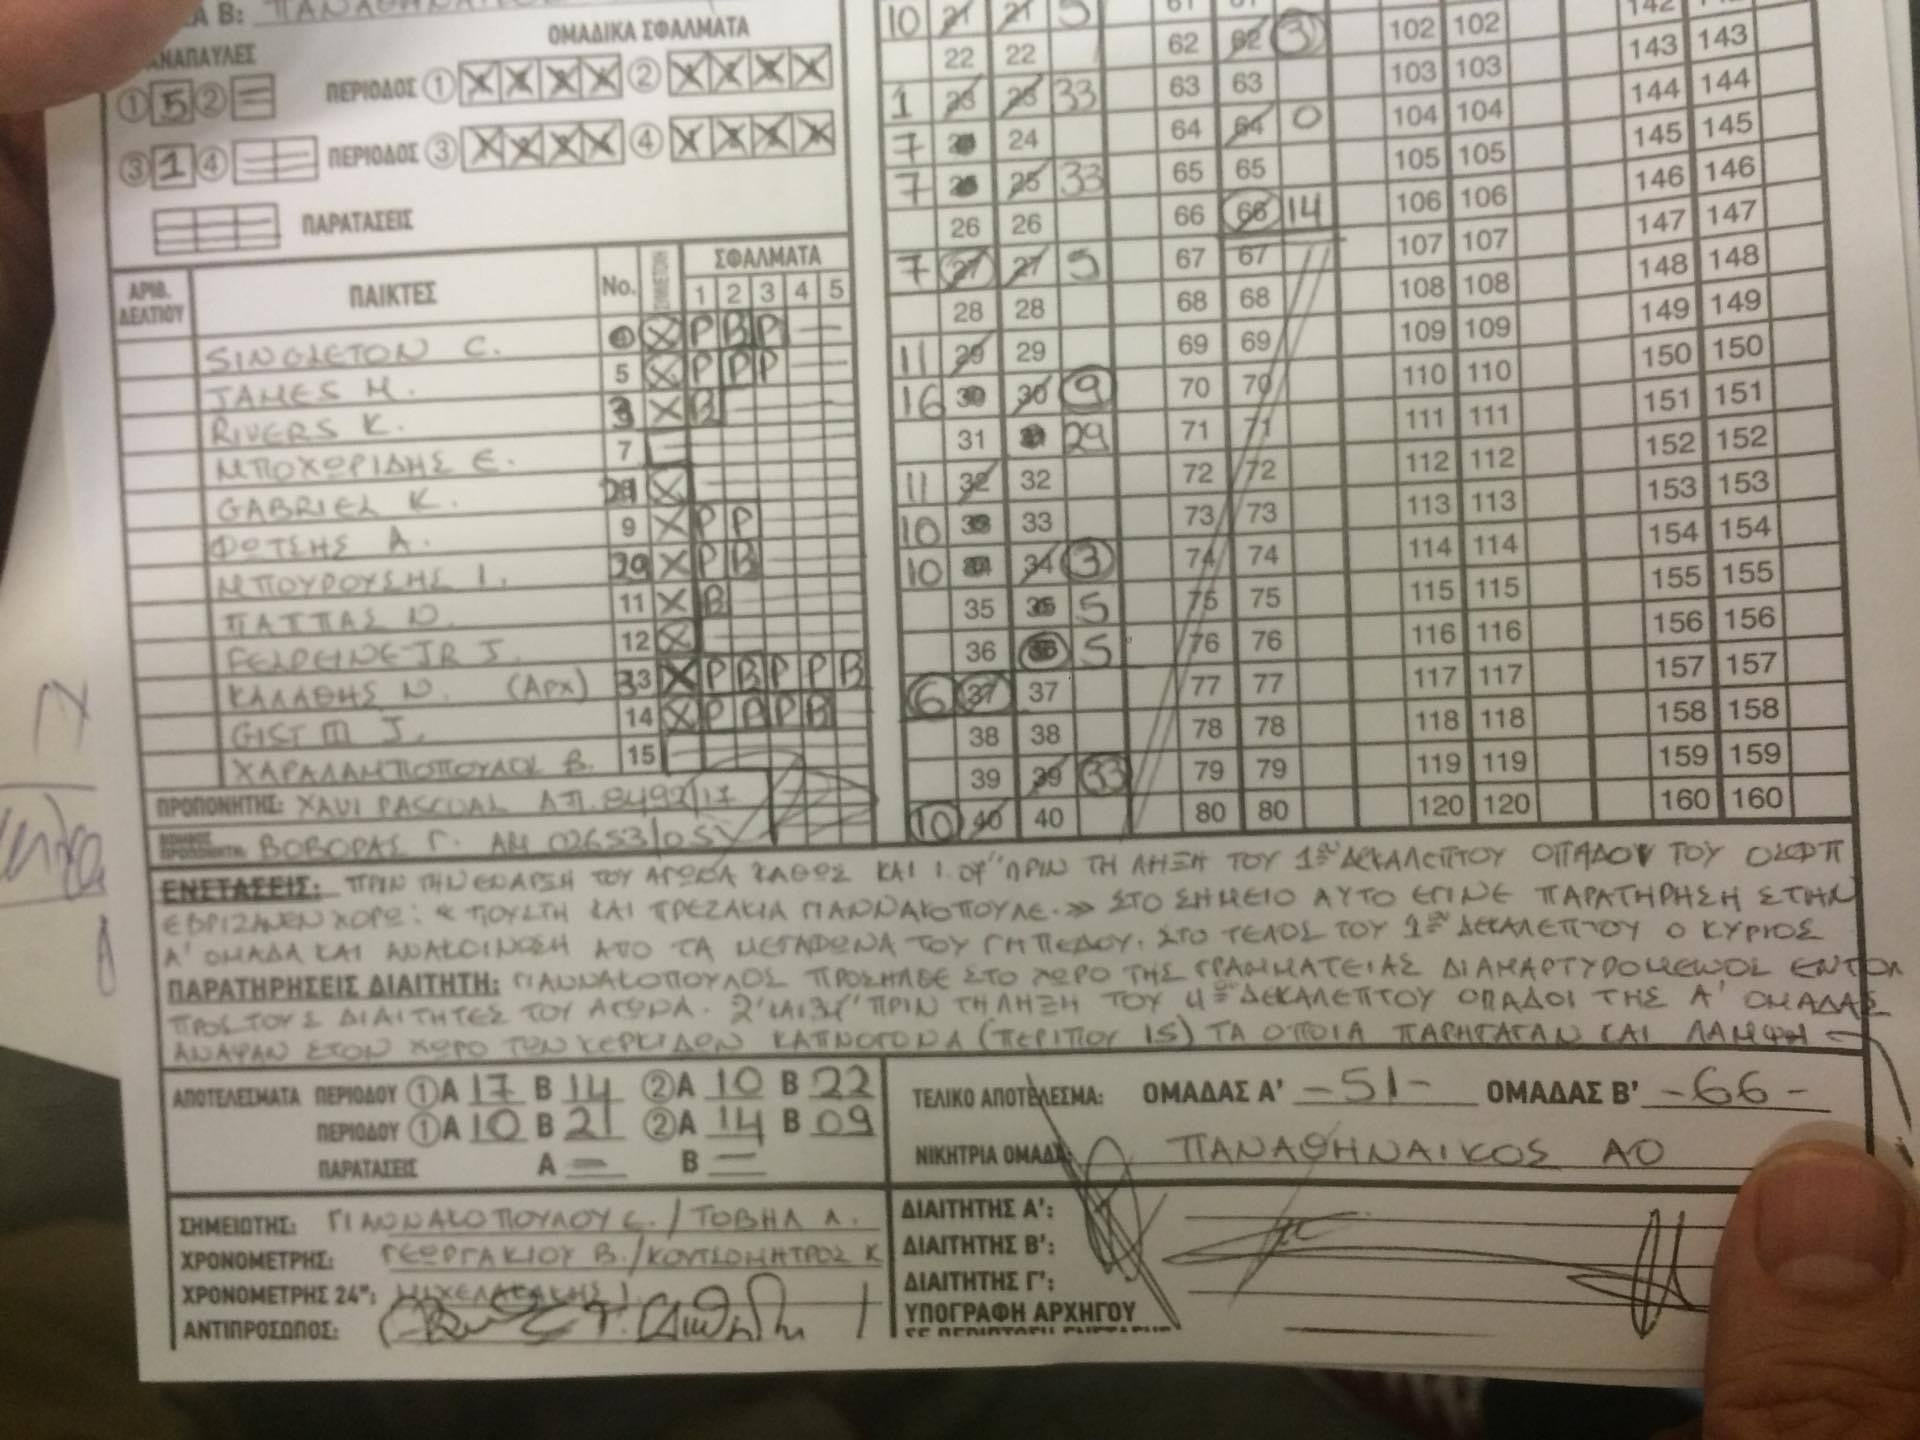 Α Β: ΠΑΝΑΘΗΝΑΙΚΟΣ
ΑΝΑΠΑΥΛΕΣ
ΟΜΑΔΙΚΑ ΣΦΑΛΜΑΤΑ
① 5 ② =
ΠΕΡΙΟΔΟΣ ① X X X X ② X X X X
③ 1 ④
ΠΕΡΙΟΔΟΣ ③ X X X X ④ X X X X
ΠΑΡΑΤΑΣΕΙΣ
ΑΡΙΘ. ΔΕΛΤΙΟΥ ΠΑΙΚΤΕΣ No. ΣΦΑΛΜΑΤΑ
1 2 3 4 5
SINGLETON C. 0 X P B P
JAMES M. 5 X P P P
RIVERS K. 3 X B
ΜΠΟΧΩΡΙΔΗΣ Ε. 7
GABRIEL K. X
ΦΩΤΣΗΣ Α. 9 X P P
ΜΠΟΥΡΟΥΣΗΣ Ι. 29 X P B
ΠΑΠΠΑΣ Ν. 11 X B
FELDEINE JR J. 12 X
ΚΑΛΑΘΗΣ Ν. (ΑΡΧ) 33 X P B P P B
GIST III J. 14 X P P P B
ΧΑΡΑΛΑΜΠΟΠΟΥΛΟΣ Β. 15
ΠΡΟΠΟΝΗΤΗΣ: XAVI PASCUAL ΑΠ. 8492/17
ΒΟΗΘΟΣ ΠΡΟΠΟΝΗΤΗ: ΒΟΒΟΡΑΣ Γ. ΑΜ 02653/05
10 21 21 5 61 61 142
22 22 62 62 3 102 102 143 143
1 23 23 33 63 63 103 103 144 144
7 24 24 64 64 0 104 104 145 145
7 25 25 33 65 65 105 105 146 146
26 26 66 66 14 106 106 147 147
7 27 27 5 67 67 107 107 148 148
28 28 68 68 108 108 149 149
11 29 29 69 69 109 109 150 150
16 30 30 9 70 70 110 110 151 151
31 31 29 71 71 111 111 152 152
11 32 32 72 72 112 112 153 153
10 33 33 73 73 113 113 154 154
10 34 34 3 74 74 114 114 155 155
35 35 5 75 75 115 115 156 156
36 36 5 76 76 116 116 157 157
6 37 37 77 77 117 117 158 158
38 38 78 78 118 118 159 159
39 39 33 79 79 119 119 160 160
10 40 40 80 80 120 120
ΕΝΣΤΑΣΕΙΣ: ΠΡΙΝ ΤΗΝ ΕΝΑΡΞΗ ΤΟΥ ΑΓΩΝΑ ΚΑΘΩΣ ΚΑΙ 1.07" ΠΡΙΝ ΤΗ ΛΗΞΗ ΤΟΥ 1ου ΔΕΚΑΛΕΠΤΟΥ ΟΠΑΔΟΙ ΤΟΥ ΟΣΦΠ
ΕΒΡΙΖΑΝ ΕΝ ΧΟΡΩ: « ΠΟΥΣΤΗ ΚΑΙ ΠΡΕΖΑΚΙΑ ΓΙΑΝΝΑΚΟΠΟΥΛΕ.» ΣΤΟ ΣΗΜΕΙΟ ΑΥΤΟ ΕΓΙΝΕ ΠΑΡΑΤΗΡΗΣΗ ΣΤΗΝ
Α' ΟΜΑΔΑ ΚΑΙ ΑΝΑΚΟΙΝΩΣΗ ΑΠΟ ΤΑ ΜΕΓΑΦΩΝΑ ΤΟΥ ΓΗΠΕΔΟΥ. ΣΤΟ ΤΕΛΟΣ ΤΟΥ 1ου ΔΕΚΑΛΕΠΤΟΥ Ο ΚΥΡΙΟΣ
ΠΑΡΑΤΗΡΗΣΕΙΣ ΔΙΑΙΤΗΤΗ: ΓΙΑΝΝΑΚΟΠΟΥΛΟΣ ΠΡΟΣΗΛΘΕ ΣΤΟ ΧΩΡΟ ΤΗΣ ΓΡΑΜΜΑΤΕΙΑΣ ΔΙΑΜΑΡΤΥΡΟΜΕΝΟΣ ΕΝΤΟΝ
ΠΡΟΣ ΤΟΥΣ ΔΙΑΙΤΗΤΕΣ ΤΟΥ ΑΓΩΝΑ. ΠΡΙΝ ΤΗ ΛΗΞΗ ΤΟΥ 4ου ΔΕΚΑΛΕΠΤΟΥ ΟΠΑΔΟΙ ΤΗΣ Α' ΟΜΑΔΑΣ
ΑΝΑΨΑΝ ΣΤΟΝ ΧΩΡΟ ΤΩΝ ΚΕΡΚΙΔΩΝ ΚΑΠΝΟΓΟΝΑ (ΠΕΡΙΠΟΥ 15) ΤΑ ΟΠΟΙΑ ΠΑΡΗΓΑΓΑΝ ΚΑΙ ΛΑΜΨΗ
ΑΠΟΤΕΛΕΣΜΑΤΑ ΠΕΡΙΟΔΟΥ ①Α 17 Β 14 ②Α 10 Β 22
ΠΕΡΙΟΔΟΥ ①Α 10 Β 21 ②Α 14 Β 09
ΠΑΡΑΤΑΣΕΙΣ Α — Β —
ΤΕΛΙΚΟ ΑΠΟΤΕΛΕΣΜΑ: ΟΜΑΔΑΣ Α' -51- ΟΜΑΔΑΣ Β' -66-
ΝΙΚΗΤΡΙΑ ΟΜΑΔΑ: ΠΑΝΑΘΗΝΑΙΚΟΣ ΑΟ
ΣΗΜΕΙΩΤΗΣ: ΓΙΑΝΝΑΚΟΠΟΥΛΟΥ Σ. / ΤΟΒΗΛ Λ.
ΧΡΟΝΟΜΕΤΡΗΣ: ΓΕΩΡΓΑΚΙΟΥ Β. / ΚΟΥΤΣΟΜΗΤΡΟΣ Κ
ΧΡΟΝΟΜΕΤΡΗΣ 24": ΜΙΧΕΛΑΚΑΚΗΣ Ι.
ΑΝΤΙΠΡΟΣΩΠΟΣ:
ΔΙΑΙΤΗΤΗΣ Α':
ΔΙΑΙΤΗΤΗΣ Β':
ΔΙΑΙΤΗΤΗΣ Γ':
ΥΠΟΓΡΑΦΗ ΑΡΧΗΓΟΥ
ΣΕ ΠΕΡΙΠΤΩΣΗ ΕΝΣΤΑΣΗΣ